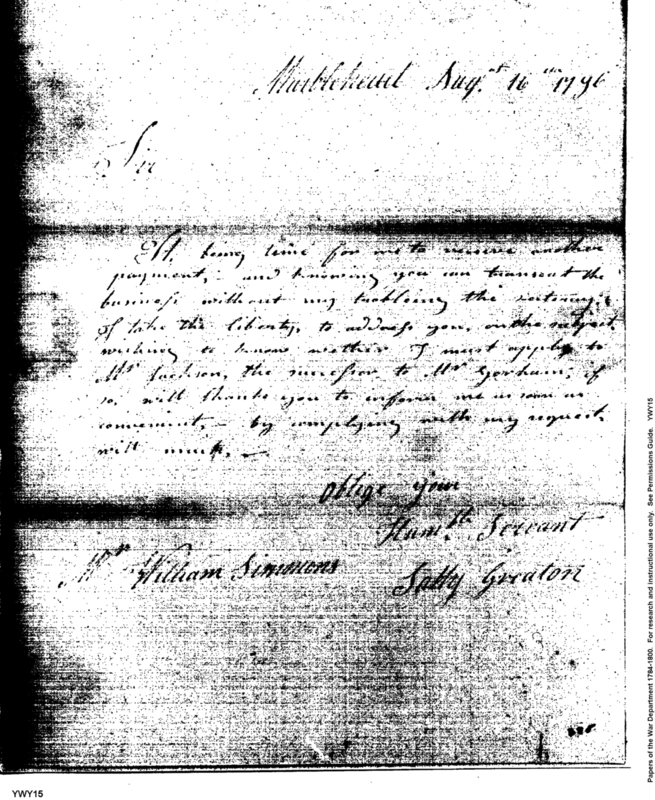 Marblehead Augst 16th 1796
Sir
It being time for me to receive another
payment, - and knowing you can transact the
business without my trobling the
I take the liberty, to address you, on the subject,
wishing to know wether I must apply to
Mr Jackson, the successor to Mr Gorham; if
so, will thank you to inform me as soon as
convenient, - by complying with my request
will much, -
Oblige your
Humble Servant
Mr William Simmons
Sally Greaton
Papers of the War Department 1784-1800. For research and instructional use only. See Permissions Guide. YWY15
YWY15